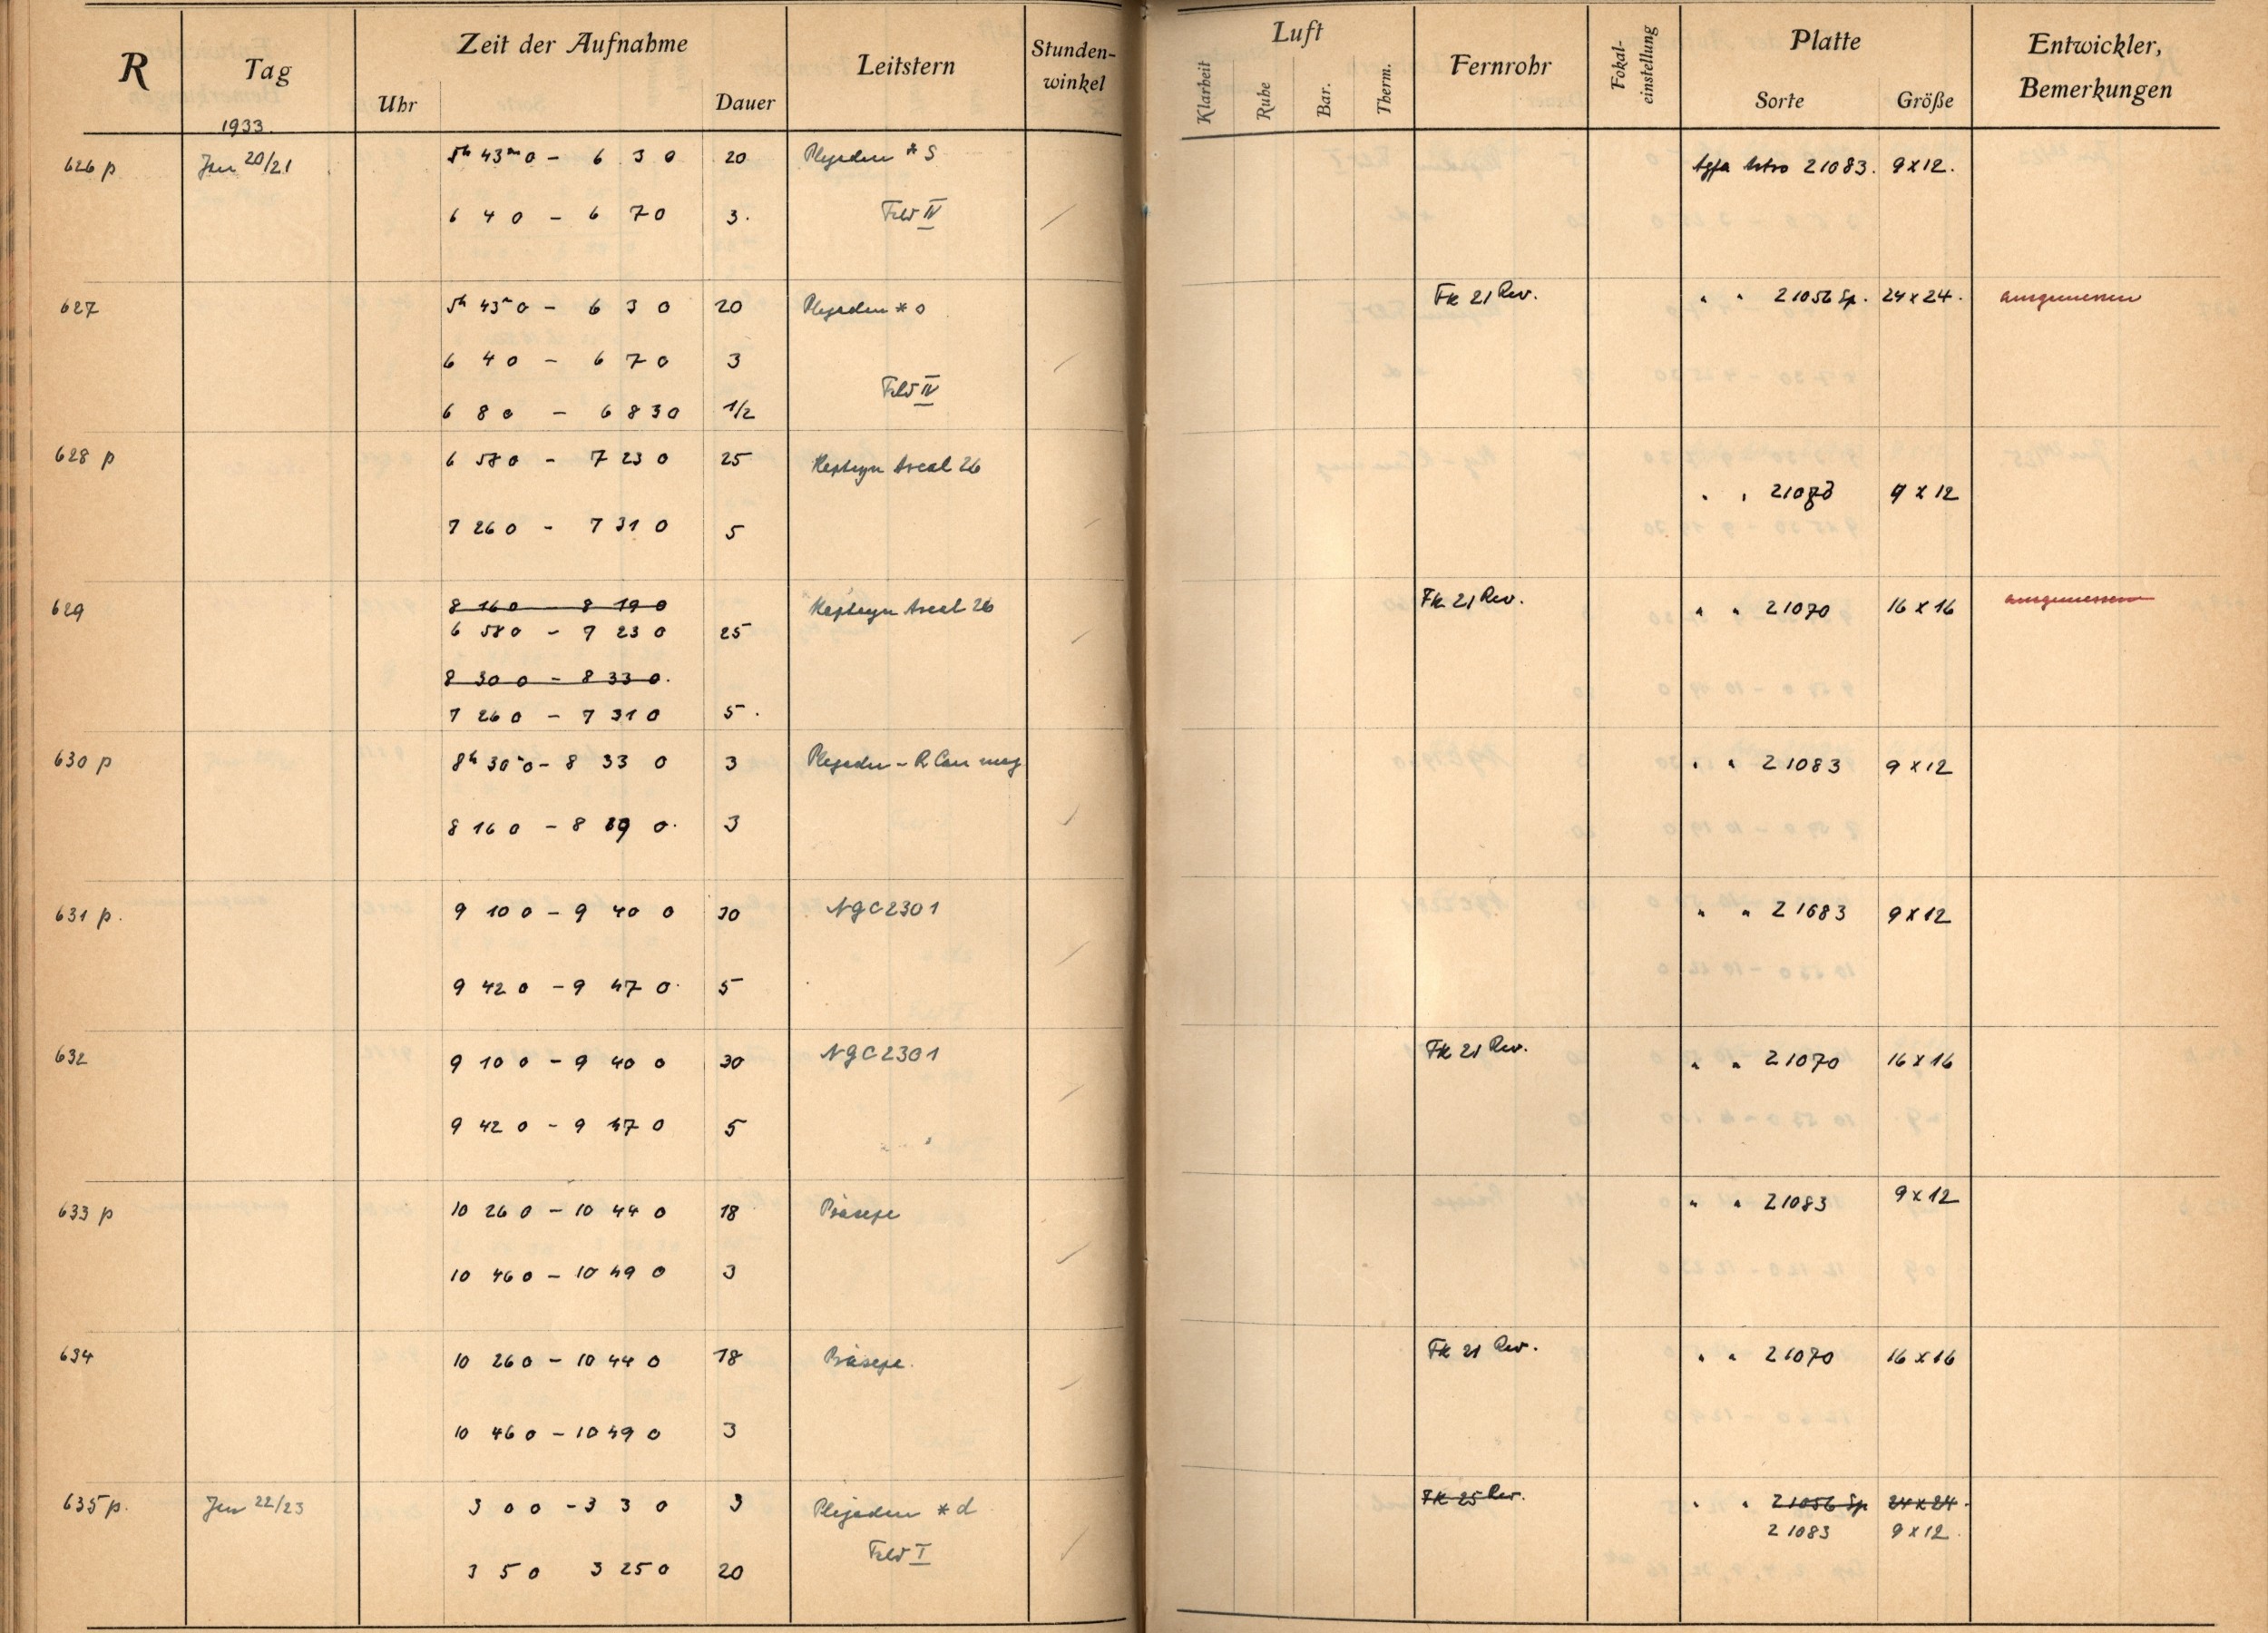 R Tag Zeit der Aufnahme Leitstern Stunden-winkel Luft Fernrohr Fokal-einstellung Platte Entwickler, Bemerkungen
Uhr Dauer Klarheit Ruhe Bar. Therm. Sorte Größe
1933.
626 p Jan 20/21 5h 43m 0 - 6 3 0 20 Plejaden * S Agfa Astro 21083. 9x12.
6 4 0 - 6 7 0 3. Feld IV
627 5h 43m 0 - 6 3 0 20 Plejaden * o FK 21 Rev. " " 21056 Sp. 24x24. ausgemessen
6 4 0 - 6 7 0 3
Feld IV
6 8 0 - 6 8 30 1/2
628 p 6 58 0 - 7 23 0 25 Kapteyn Areal 26
" " 9 x 12
7 26 0 - 7 31 0 5
629 8 16 0 - 8 19 0 Kapteyn Areal 26 FK 21 Rev. " " 21070 16 x 16 ausgemessen
6 58 0 - 7 23 0 25
8 30 0 - 8 33 0.
7 26 0 - 7 31 0 5.
630 p 8h 30m 0 - 8 33 0 3 Plejaden - R Can maj " " 21083 9 x 12
8 16 0 - 8 19 0. 3
631 p. 9 10 0 - 9 40 0 30 NGC 2301 " " 21083 9 x 12
9 42 0 - 9 47 0. 5
632 9 10 0 - 9 40 0 30 NGC 2301 FK 21 Rev. " " 21070 16 x 16
9 42 0 - 9 47 0 5
633 p 10 26 0 - 10 44 0 18 Präsepe " " 21083 9 x 12
10 46 0 - 10 49 0 3
634 10 26 0 - 10 44 0 18 Präsepe. FK 21 Rev. " " 21070 16 x 16
10 46 0 - 10 49 0 3
635 p. Jan 22/23 3 0 0 - 3 3 0 3 Plejaden * d FK 25 Rev. " " 21056 Sp 24x24.
21083 9 x 12.
Feld I
3 5 0 3 25 0 20